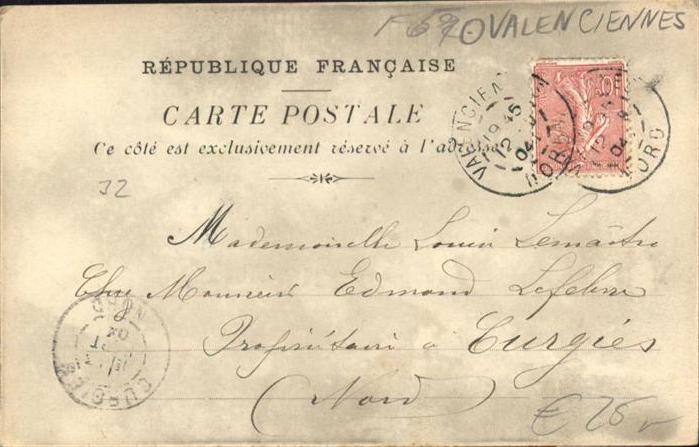 F 59 VALENCIENNES
RÉPUBLIQUE FRANÇAISE
CARTE POSTALE
Ce côté est exclusivement réservé à l'adresse
J2
VALENCIENNES
NORD
19 45
12
04
10
Mademoiselle Louise Lemaître
Chez Monsieur Edmond Lefebvre
Propriétaire à Curgies
(Nord)
CURGIES
NORD
04
€ 25